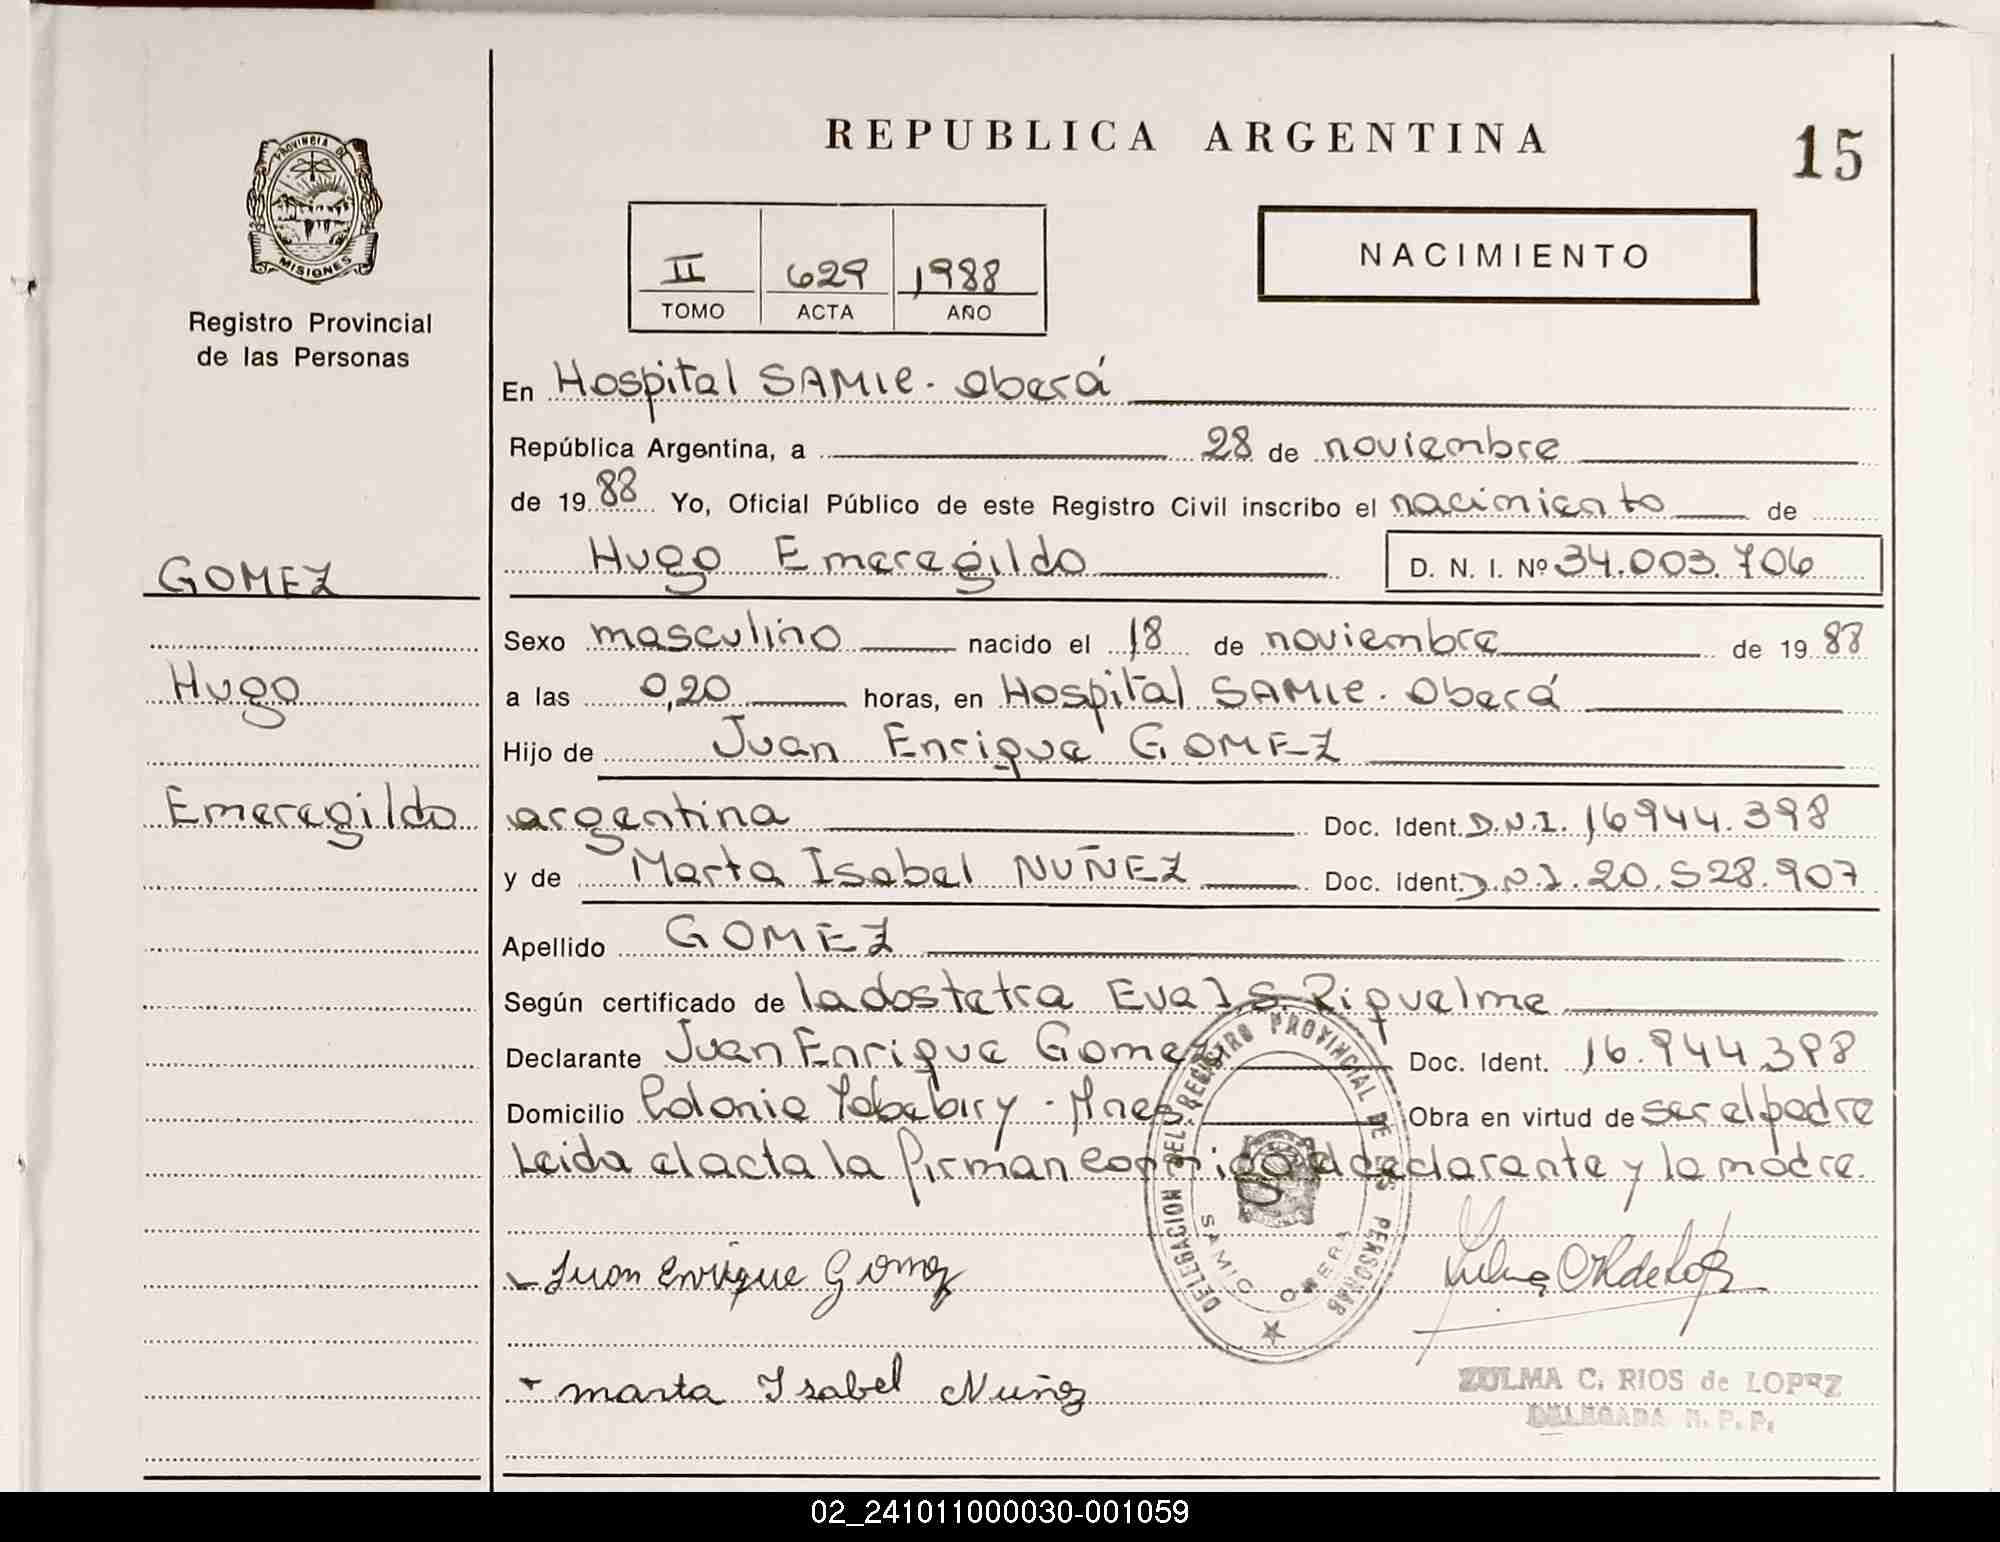 REPUBLICA ARGENTINA
15
PROVINCIA DE
MISIONES
Registro Provincial
de las Personas
II 629 1988
TOMO ACTA AÑO
NACIMIENTO
En Hospital SAMIC - Oberá
República Argentina, a 28 de noviembre
de 1988 Yo, Oficial Público de este Registro Civil inscribo el nacimiento de
Hugo Emeregildo D. N. I. Nº 34.003.706
GOMEZ
Hugo
Emeregildo
Sexo masculino nacido el 18 de noviembre de 1988
a las 0,20 horas, en Hospital SAMIC - Oberá
Hijo de Juan Enrique GOMEZ
argentina Doc. Ident. D.N.I. 16944.398
y de Marta Isabel NUÑEZ Doc. Ident. D.N.I. 20.528.907
Apellido GOMEZ
Según certificado de la obstetra Eva I.S. Riquelme
Declarante Juan Enrique Gomez Doc. Ident. 16.944.398
Domicilio Colonia Yabebiry - Mnes Obra en virtud de ser el padre
Leida el acta la firman conmigo el declarante y la madre.
DELEGACION DEL REGISTRO PROVINCIAL DE LAS PERSONAS
SAMIC OBERA
Juan Enrique Gomez
Marta Isabel Nuñez
ZULMA C. RIOS de LOPEZ
DELEGADA R. P. P.
02_241011000030-001059